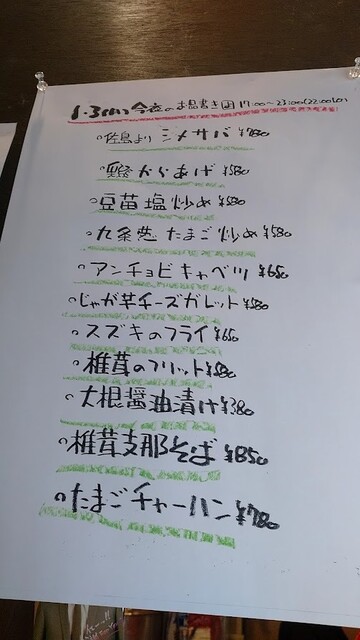 1.3(m) 今夜のお品書き 17:00~23:00(22:00LO)
○佐島より シメサバ ¥780
○鶏からあげ ¥580
○豆苗塩炒め ¥580
○九条葱たまご炒め ¥580
○アンチョビキャベツ ¥650
○じゃが芋チーズガレット ¥580
○スズキのフライ ¥650
○椎茸のフリット ¥580
○大根醤油漬け ¥380
○椎茸支那そば ¥850
○たまごチャーハン ¥780